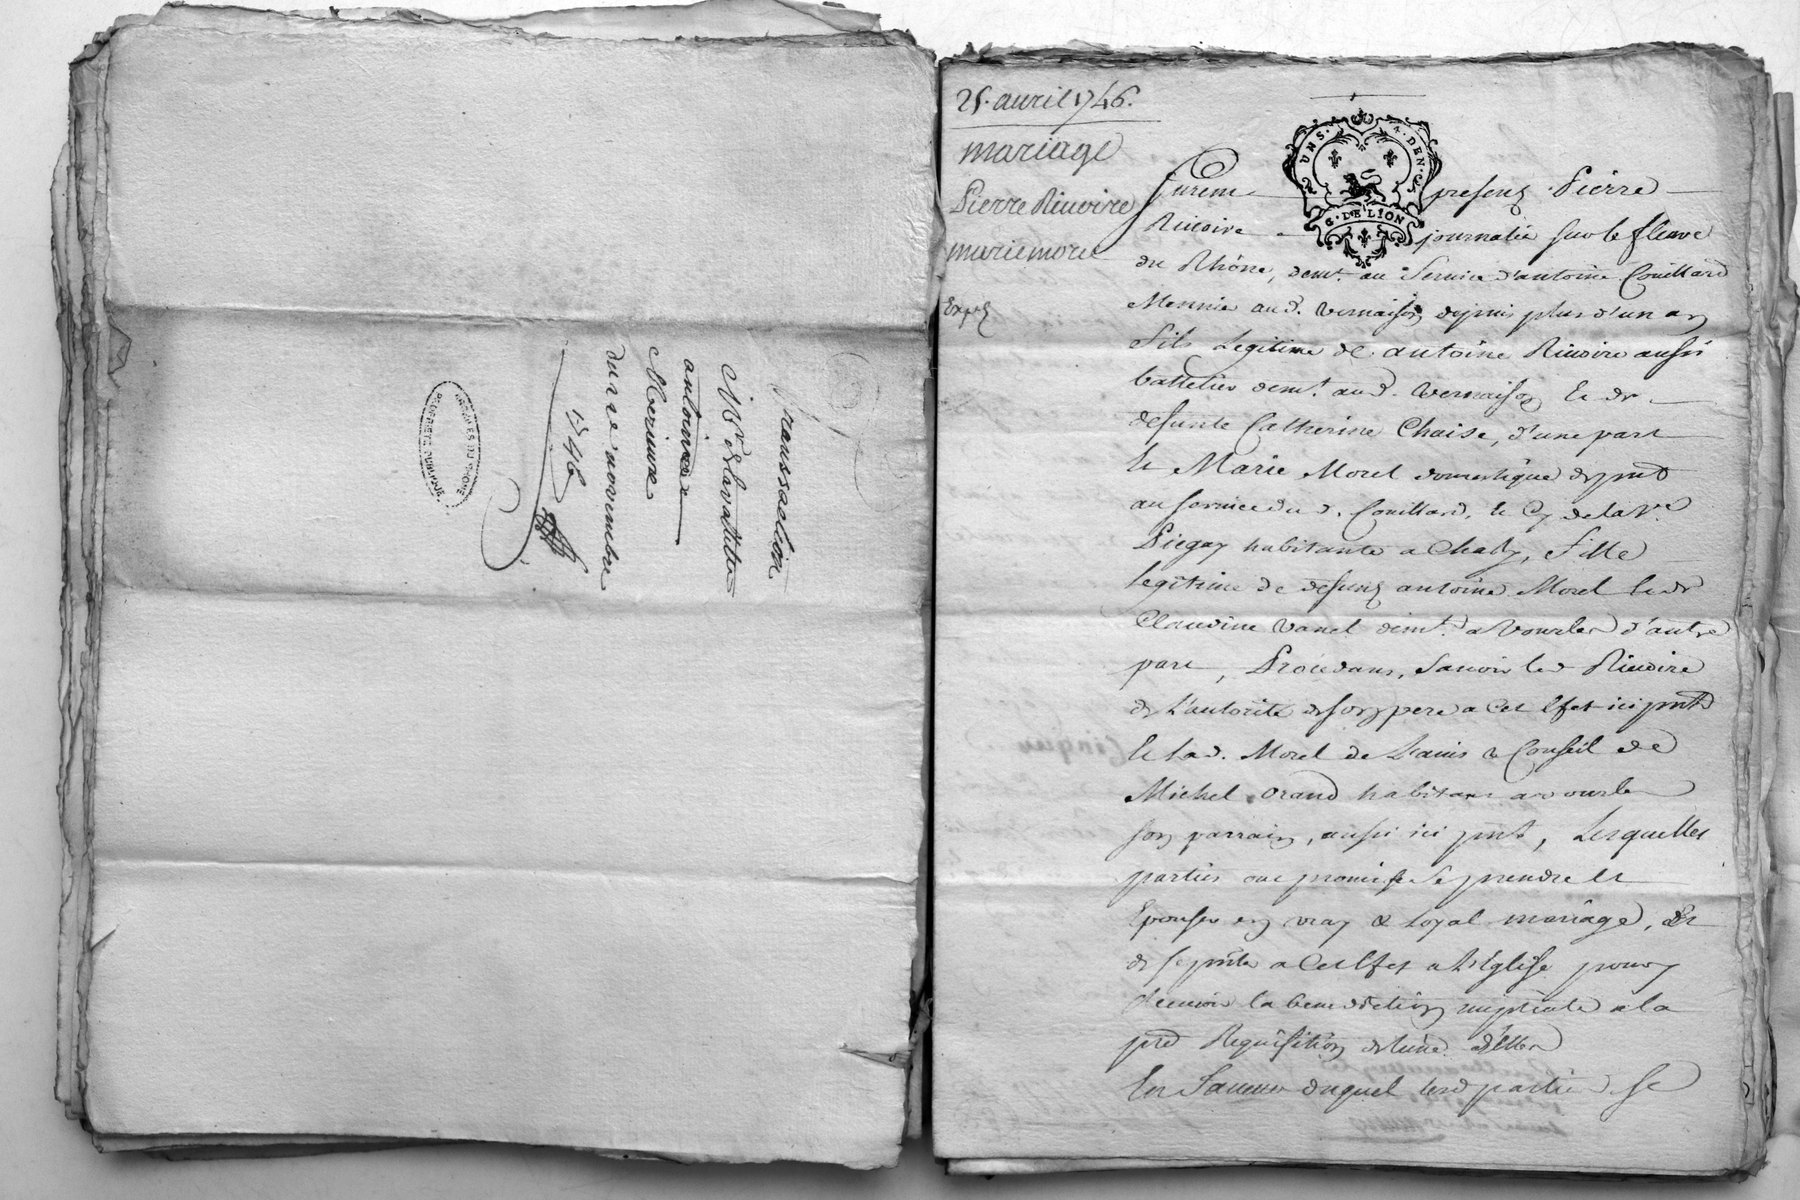 Transsaction
Mr
antoine
Meriure
du 12e novembre
1746
ARCHIVES DU RHONE
PROPRIETE PUBLIQUE
25. avril 1746.
mariage
Pierre Riuoire
marie morel
Exp.
UNS. 4. DEN.
G. DE LION
Furent presens Pierre
Riuoire journalié sur le fleuve
du Rhône, demt. au Service d'antoine Couillard
Mennie aud. Vernaison depuis plus d'un an
fils Legitime de antoine Riuoire aussi
battelier demt. aud. Vernaison Et de
defunte Catherine Chaise, d'une part
Et Marie Morel domestique
au service du d. Couillard, de la Ve.
habitante a fille
legitime de defunt antoine Morel Et de
Claudine Vanel demt. a Vourles d'autre
part, Procedans, sauoir led Riuoire
de L'autorité de son pere a cet Effet ici pnt
Et lad. Morel de L'auis & Conseil de
Michel orand habitant a vourles
son parrain, aussi ici pnt, Lesquelles
parties ont promis Se prendre Et
Epouser en vray & loyal mariage, Et
de se pnter a cet Effet a L'Eglise pour y
Receuoir la benediction nuptiale a la
pre Requisition de l'une d'elles
En faueur duquel lesd parties Se